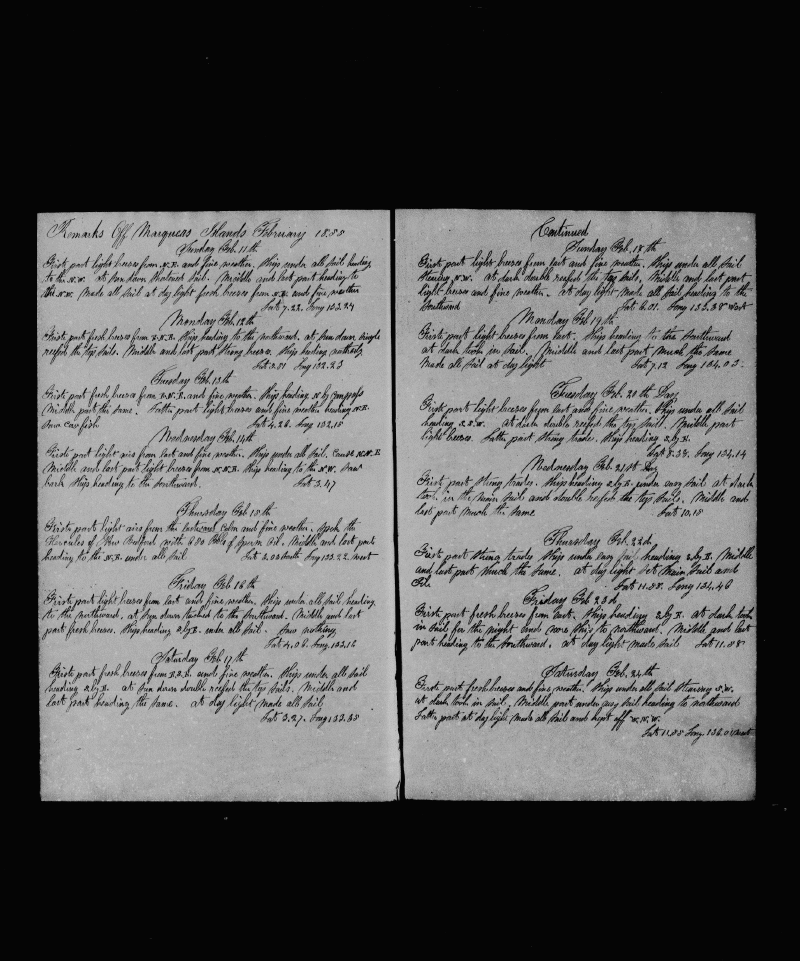 Remarks Off Marqueas Islands February 1855
Sunday Feb. 11th
Firste part light breeses from N.E. and fine weather. Ships under all sail heading
to the N.W. at Sun down shortned sail. Middle and last part heading to
the N.W. Made all sail at day light fresh breeses from N.E. and fine weather
Latt 7.22. Long 133.24
Monday Feb. 12th
Firste part fresh breeses from E.N.E. Ships heading to the northward. at Sun down single
reefed the top sails. Middle and last part strong breeses. Ships heading
Latt 5.51 Long 132.23
Tuesday Feb. 13th
Firste part fresh breeses from E.N.E. and fine weather. Ships heading N by compass
Middle part the same. Latter part light breeses and fine weather heading N.E.
Saw cow fish Latt 4.26. Long 132.15
Wednesday Feb. 14th
Firste part light airs from east and fine weather. Ships under all sail. N.N.E.
Middle and last part light breeses from N.N.E. Ships heading to the N.W. Saw
bark Ships heading to the Southward. Latt 3.47
Thursday Feb 15th
Firste part light airs from the eastward calm and fine weather. Spok the
Hercules of New Bedford with 280 bbls of Sperm Oil. Middle and last part
heading to the N.E. under all sail Latt 3.02 South Long 133.22 west
Friday Feb 16th
Firste part light breeses from east and fine weather. Ships under all sail heading
to the northward, at Sun down tacked to the Southward. Middle and last
part fresh breeses. Ships heading S by E. under all sail. Saw nothing
Latt 4.06. Long 133.16
Saturday Feb 17th
Firste part fresh breeses from E.S.E. and fine weather. Ships under all sail
heading S by E. at Sun down double reefed the top sails. Middle and
last part heading the same. At day light made all sail
Latt 5.27. Long 133.35
Continued
Sunday Feb. 18th
Firste part light breeses from east and fine weather. Ships under all sail
Stearing S.W. at dark double reefed the top sails. Middle and last part
light breeses and fine weather. at day light made all sail heading to the
Southward Latt 6.01. Long 133.38 west
Monday Feb 19th
Firste part light breeses from east. Ships heading to the Southward
at dark took in sail. Middle and last part much the same
Made all sail at day light Latt 7.12 Long 134.03.
Tuesday Feb. 20th Day
Firste part light breeses from east and fine weather. Ships under all sail
heading S.S.W. at dark double reefed the top sails. Middle part
light breeses. Latter part strong trade. Ships heading S by E.
Latt 8.38. Long 134.14
Wednesday Feb. 21st Day
Firste part strong trades. Ships heading S by E. under easy sail at dark
took in the main sail and double reefed the top sails. Middle and
last part much the same Latt 10.18
Thursday Feb. 22d,
Firste part strong trades Ships under easy sail heading S by E. Middle
and last part much the same. at day light Set Main Sail and
Gib Latt 11.58. Long 134.46
Friday Feb 23d
Firste part fresh breeses from east. Ships heading S by E. at dark took
in sail for the night and wore ships to northward. Middle and last
part heading to the Southward. at day light made sail Latt 11.58
Saturday Feb. 24th
Firste part fresh breeses and fine weather. Ships under all sail Stearing S.W.
at dark took in sail. Middle part under easy sail heading to northward
Latter part at day light made all sail and kept off W.N.W.
Latt 11.55 Long. 136.01 west